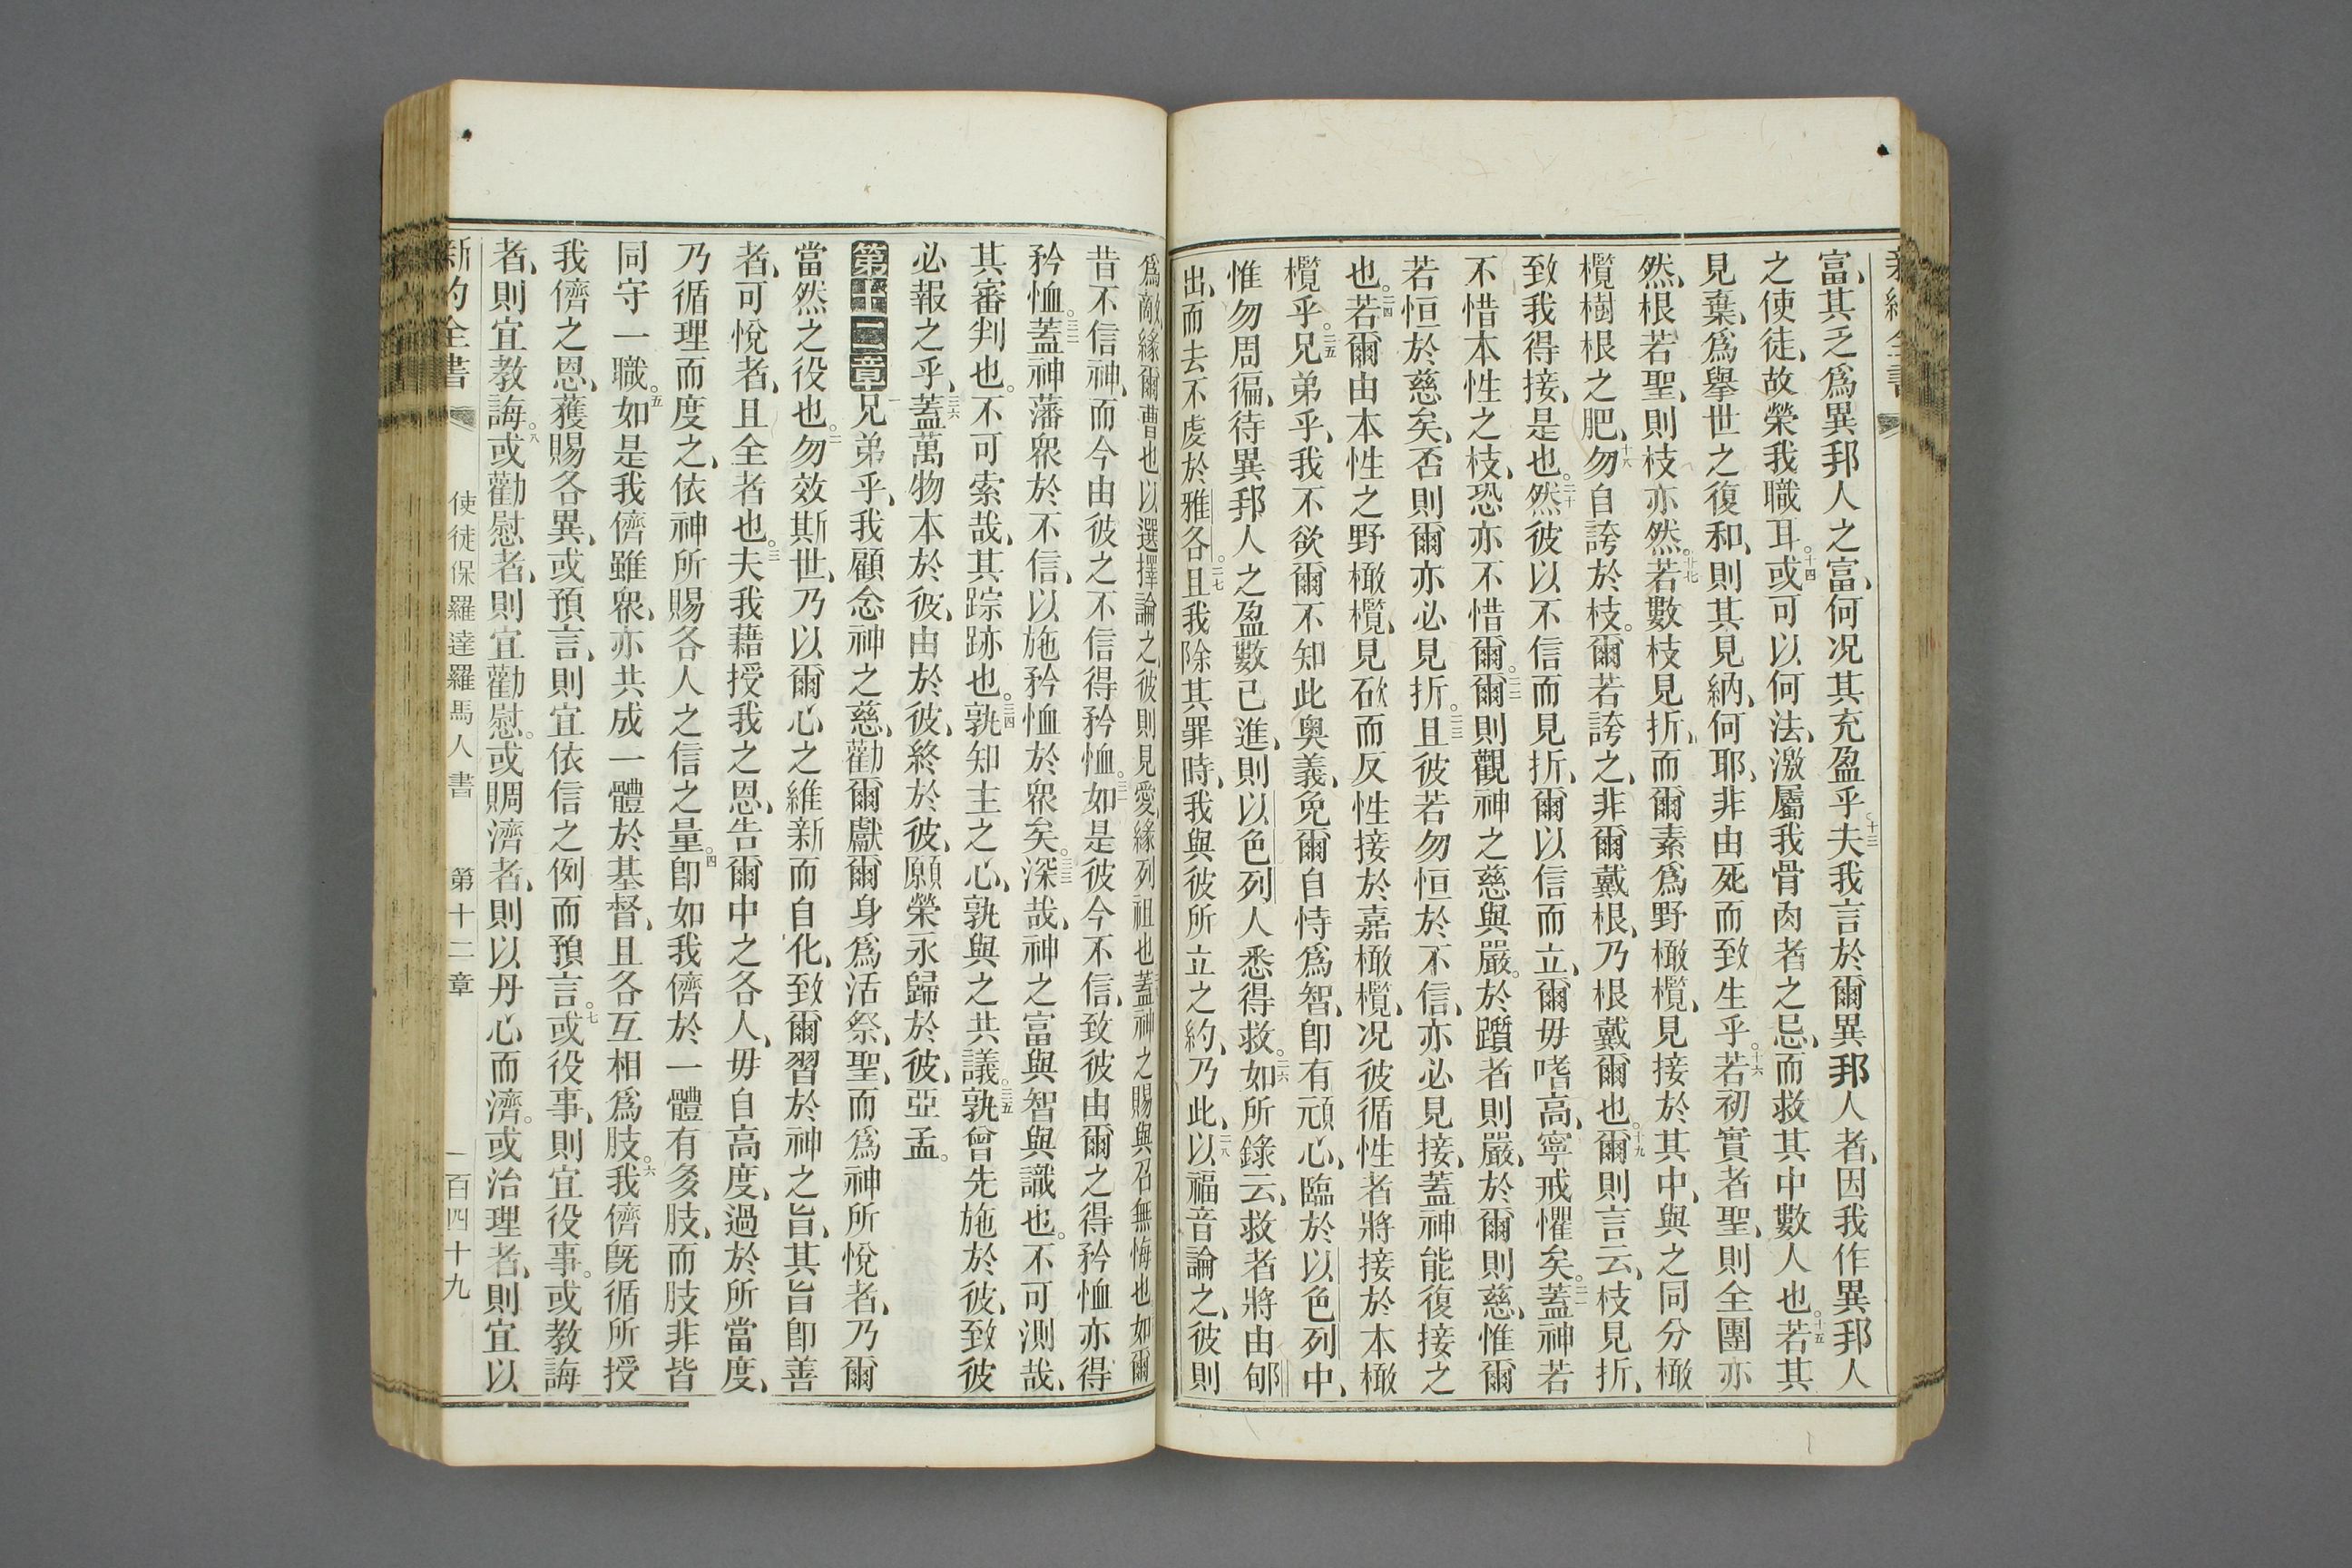 富、其乏爲異邦人之富、何况其充盈乎、十三夫我言於爾異邦人者、因我作異邦人
之使徒、故榮我職耳。十四或可以何法、激屬我骨肉者之忌、而救其中數人也。十五若其
見棄、爲擧世之復和、則其見納、何耶、非由死而致生乎。十六若初實者聖、則全團亦
然、根若聖、則枝亦然。十七若數枝見折、而爾素爲野橄欖、見接於其中、與之同分橄
欖樹根之肥、十八勿自誇於枝。爾若誇之、非爾戴根、乃根戴爾也。十九爾則言云、枝見折、
致我得接、是也。二十然彼以不信而見折、爾以信而立、爾毋嗜高、寧戒懼矣。二一蓋神若
不惜本性之枝、恐亦不惜爾。二二爾則觀神之慈與嚴。於躓者則嚴、於爾則慈、惟爾
若恒於慈矣、否則爾亦必見折。二三且彼若勿恒於不信、亦必見接、蓋神能復接之
也。二四若爾由本性之野橄欖、見砍而反性接於嘉橄欖、况彼循性者將接於本橄
欖乎。二五兄弟乎、我不欲爾不知此奥義、免爾自恃爲智、卽有頑心、臨於以色列中、
惟勿周徧、待異邦人之盈數已進、則以色列人悉得救。二六如所錄云、救者將由郇
出、而去不虔於雅各。二七且我除其罪時、我與彼所立之約、乃此、二八以福音論之、彼則
爲敵、緣爾曹也以選擇論之、彼則見愛、緣列祖也蓋神之賜與召無悔也如爾
昔不信神、而今由彼之不信得矜恤。三一如是彼今不信、致彼由爾之得矜恤亦得
矜恤。三二蓋神藩衆於不信、以施矜恤於衆矣。三三深哉、神之富與智與識也。不可測哉、
其審判也。不可索哉、其踪跡也。三四孰知主之心、孰與之共議。三五孰曾先施於彼、致彼
必報之乎、三六蓋萬物本於彼、由於彼、終於彼、願榮永歸於彼、亞孟。
第十二章一兄弟乎、我顧念神之慈、勸爾獻爾身爲活祭、聖、而爲神所悅者、乃爾
當然之役也。二勿效斯世、乃以爾心之維新而自化、致爾習於神之旨、其旨卽善
者、可悅者、且全者也。三夫我藉授我之恩、告爾中之各人、毋自高度、過於所當度、
乃循理而度之、依神所賜各人之信之量。四卽如我儕於一體有多肢、而肢非皆
同守一職。五如是我儕雖衆、亦共成一體於基督、且各互相爲肢。六我儕既循所授
我儕之恩、獲賜各異、或預言、則宜依信之例而預言。七或役事、則宜役事。或教誨
者、則宜教誨。八或勸慰者、則宜勸慰。或賙濟者、則以丹心而濟。或治理者、則宜以
新約全書 使徒保羅達羅馬人書 第十二章 一百四十九